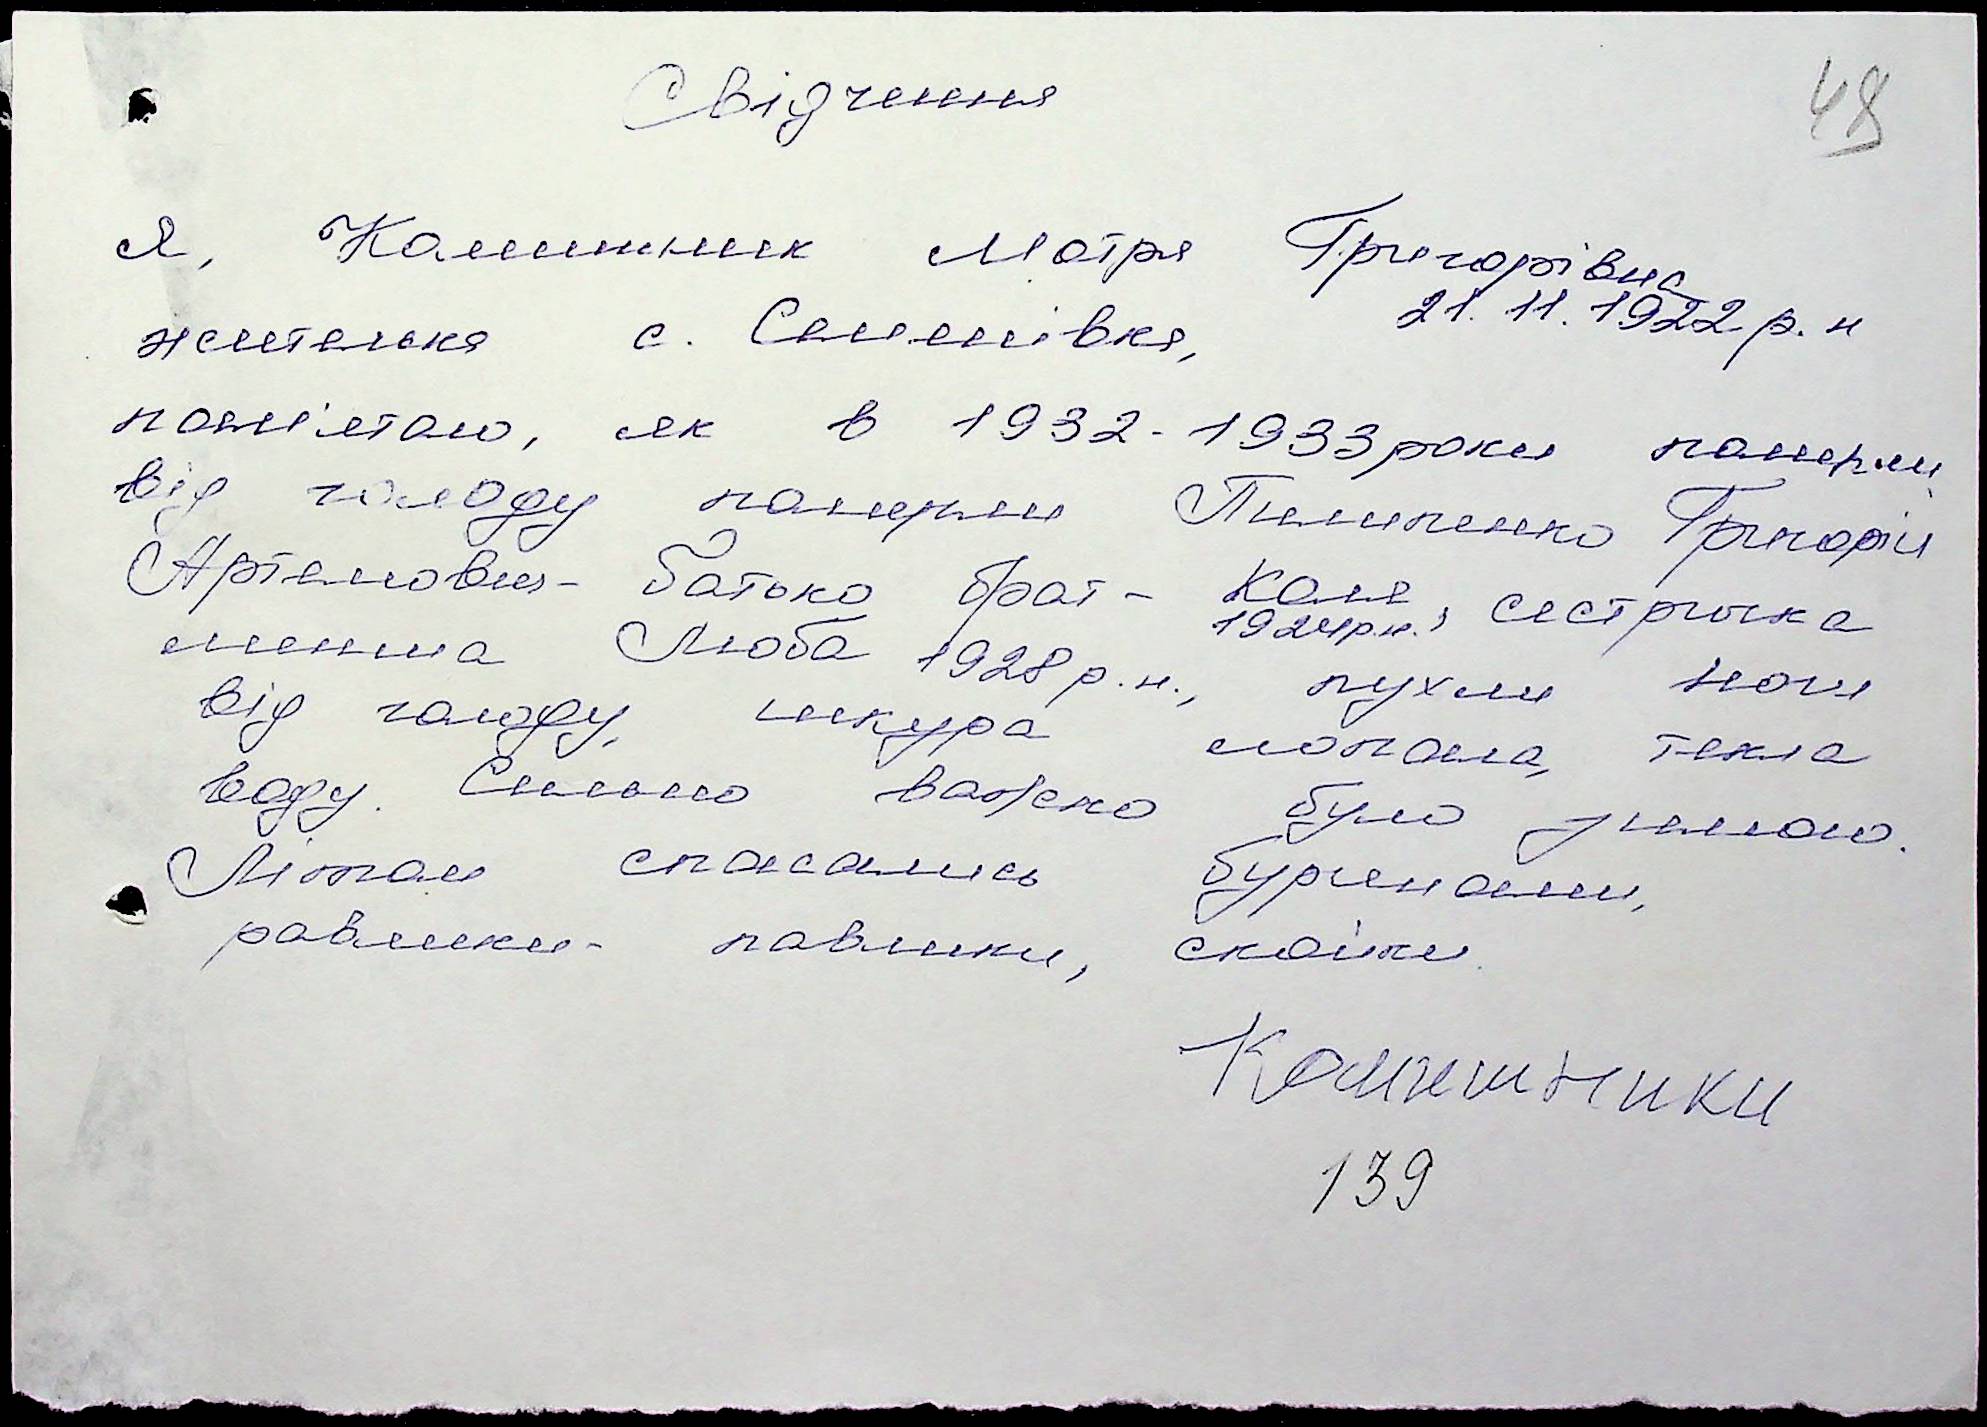 48
Свідчення
Я, Комишник Мотря Григорівна
21.11.1922 р.н
жителька с. Семенівка,
пам'ятаю, як в 1932-1933 роки померли
від голоду померли Пилипенко Григорій
Артемович - батько брат - Коля, сестричка
1924р.н.,
менша Люба 1928 р.н., пухли ноги
від голоду, шкура лопала, текла
воду. Сильно важко було зимою.
Літом спасались бурянами,
равлики - павлики, скойки.
139